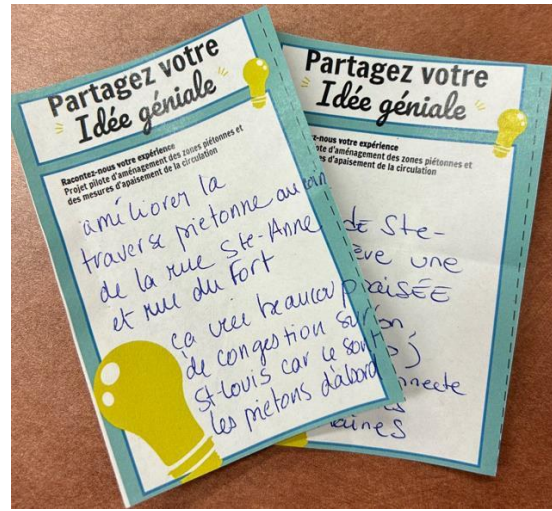 Partagez votre
Idée géniale
Racontez-nous votre expérience
Projet pilote d'aménagement des zones piétonnes et
des mesures d'apaisement de la circulation
améliorer la
traverse pietonne au coin
de la rue Ste-Anne
et rue du Fort
ça crée beaucoup
de congestion sur
St-Louis car ce sont
les pietons d'abord
Partagez votre
Idée géniale
z-nous votre expérience
ilote d'aménagement des zones piétonnes et
es d'apaisement de la circulation
de Ste-
ève une
aisée
on
necte
aines